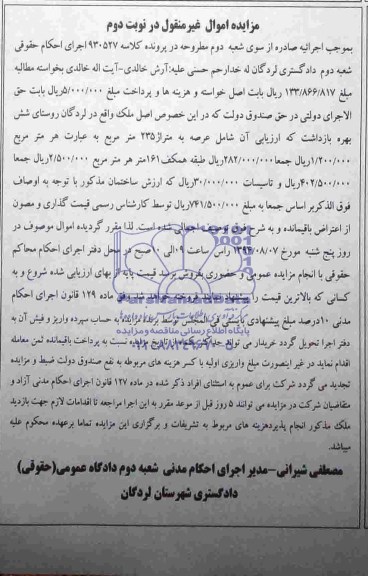 مزایده اموال غیرمنقول در نوبت دوم
بموجب اجرائیه صادره از سوی شعبه دوم مطروحه در پرونده کلاسه ۹۳۰۵۲۷ اجرای احکام حقوقی
شعبه دوم دادگستری لردگان له خدارحم حسنی علیه: آرش خالدی-آیت اله خالدی بخواسته مطالبه
مبلغ ۱۳۳/۸۶۶/۸۱۷ ریال بابت اصل خواسته و هزینه ها و پرداخت مبلغ ۵/۰۰۰/۰۰۰ریال بابت حق
الاجرای دولتی در حق صندوق دولت که در این خصوص اصل ملک واقع در لردگان روستای شش
بهره بازداشت که ارزیابی آن شامل عرصه به متراژ۲۳۵ متر مربع به عبارت هر متر مربع
۱/۲۰۰/۰۰۰ریال جمعا۲۸۲/۰۰۰/۰۰۰ریال طبقه همکف۱۶۱متر هر متر مربع ۲/۵۰۰/۰۰۰ریال جمعا
۴۰۲/۵۰۰/۰۰۰ریال و تاسیسات ۳۰/۰۰۰/۰۰۰ریال که ارزش ساختمان مذکور با توجه به اوصاف
فوق الذکربر اساس جمعا به مبلغ ۷۴۱/۵۰۰/۰۰۰ریال توسط کارشناس رسمی قیمت گذاری و مصون
از اعتراض باقیمانده و به شرح فوق توصیف اجمالی شده است. لذا مقرر گردیده اموال موصوف در
روز پنج شنبه مورخ ۱۳۹۴/۰۸/۰۷ راس ساعت ۹الی ۱۰صبح در محل دفتر اجرای احکام محاکم
حقوقی با انجام مزایده عمومی و حضوری بفروش برسد قیمت پایه از بهای ارزیابی شده شروع و به
کسانی که بالاترین قیمت را پیشنهاد نمایند فروخته خواهد شد وفق ماده ۱۲۹ قانون اجرای احکام
مدنی ۱۰درصد مبلغ پیشنهادی بایستی فی المجلس توسط برنده مزایده به حساب سپرده واریز و فیش آن به
دفتر اجرا تحویل گردد خریدار می تواند حداکثر یکماه از تاریخ مزایده نسبت به پرداخت باقیمانده ثمن معامله
اقدام نماید در غیر اینصورت مبلغ واریزی اولیه با کسر هزینه های مربوطه به نفع صندوق دولت ضبط و مزایده
تجدید می گردد شرکت برای عموم به استثنای افراد ذکر شده در ماده ۱۲۷ قانون اجرای احکام مدنی آزاد و
متقاضیان شرکت در مزایده می توانند ۵ روز قبل از موعد مقرر به این اجرا مراجعه تا اقدامات لازم جهت بازدید
ملک مذکور انجام پذیردهزینه های مربوط به تشریفات و برگزاری این مزایده تماما برعهده محکوم علیه
میباشد.
مصطفی شیرانی-مدیر اجرای احکام مدنی شعبه دوم دادگاه عمومی(حقوقی)
دادگستری شهرستان لردگان
پایگاه اطلاع رسانی مناقصه ومزایده